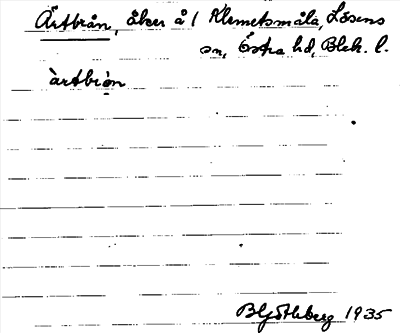 Ärtbrån, åker å 1 Klemetsmåla, Lösens
sn, Östra hd, Blek. l.
àrtbròn
Bl Götlıberg 1935